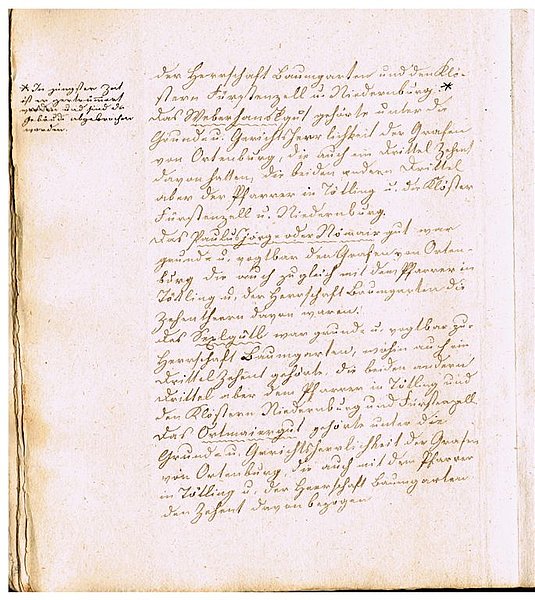 * In jüngster Zeit
ist er zertrümmert
worden und sind die
Gebäude abgebrochen
worden.
der Herrschaft Baumgarten und den Klö-
stern Fürstenzell u. Niedernburg. *
Das Weberhanslgut gehörte unter die
Grund u. Gerichtsherrlichkeit der Grafen
von Ortenburg, die auch ein Drittel Zehent
davon hatten, die beiden andern Drittel
aber der Pfarrer in Tötling u. die Klöster
Fürstenzell u. Niedernburg.
Das Paulusjörge oder gut war
grund u. vogtbar den Grafen von Orten-
burg die auch zugleich mit dem Pfarrer in
Töttling u. der Herrschaft Baumgarten die
Zehentherrn davon waren.
Das war grund u. vogtbar zur
Herrschaft Baumgarten, wohin auch ein
Drittel Zehent gehörte, die beiden andern
Drittel aber dem Pfarrer in Tötling und
den Klöstern Niedernburg und Fürstenzell
Das Ortmaiergut gehörte unter die
Grund u. Gerichtsherrlichkeit der Grafen
von Ortenburg, die auch mit dem Pfarrer
in Tötling u. der Herrschaft Baumgarten
den Zehent davon bezogen